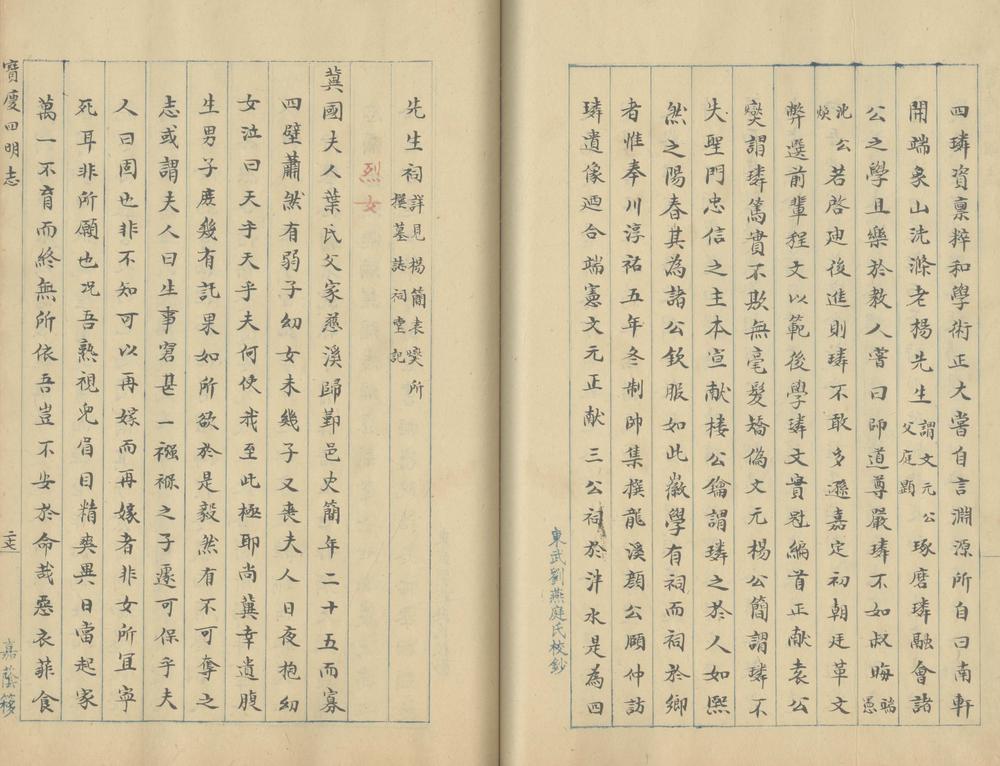 四璘資稟粹和學術正大嘗自言淵源所自曰南軒
開端象山洗滌老楊先生謂文元公父庭顯琢磨璘融會諸
公之學且樂於教人嘗曰師道尊嚴璘不如叔晦端憲
沈煥公若啓迪後進則璘不敢多遜嘉定初朝廷革文
弊選前輩程文以範後學璘文實冠編首正献袁公
燮謂璘篤實不欺無毫髮矯偽文元楊公簡謂璘不
失聖門忠信之主本宣献樓公鑰謂璘之於人如熙
然之陽春其為諸公欽服如此徽學有祠而祠於鄉
者惟奉川淳祐五年冬制帥集撰龍溪顏公頤仲訪
璘遺像迺合端憲文元正献三公祠於泮水是為四
東武劉燕庭氏校鈔
先生祠詳見楊簡袁燮所撰墓誌祠堂記
烈女
冀國夫人葉氏父家慈溪歸鄞邑史簡年二十五而寡
四壁蕭然有弱子幼女未幾子又喪夫人日夜抱幼
女泣曰天乎天乎夫何使我至此極耶尚冀幸遺腹
生男子庻幾有託果如所欲於是毅然有不可奪之
志或謂夫人曰生事窘甚一襁褓之子遽可保乎夫
人曰固也非不知可以再嫁而再嫁者非女所宜寧
死耳非所願也况吾熟視兒眉目精爽異日當起家
萬一不育而終無所依吾豈不安於命哉惡衣菲食
寶慶四明志
嘉蔭簃